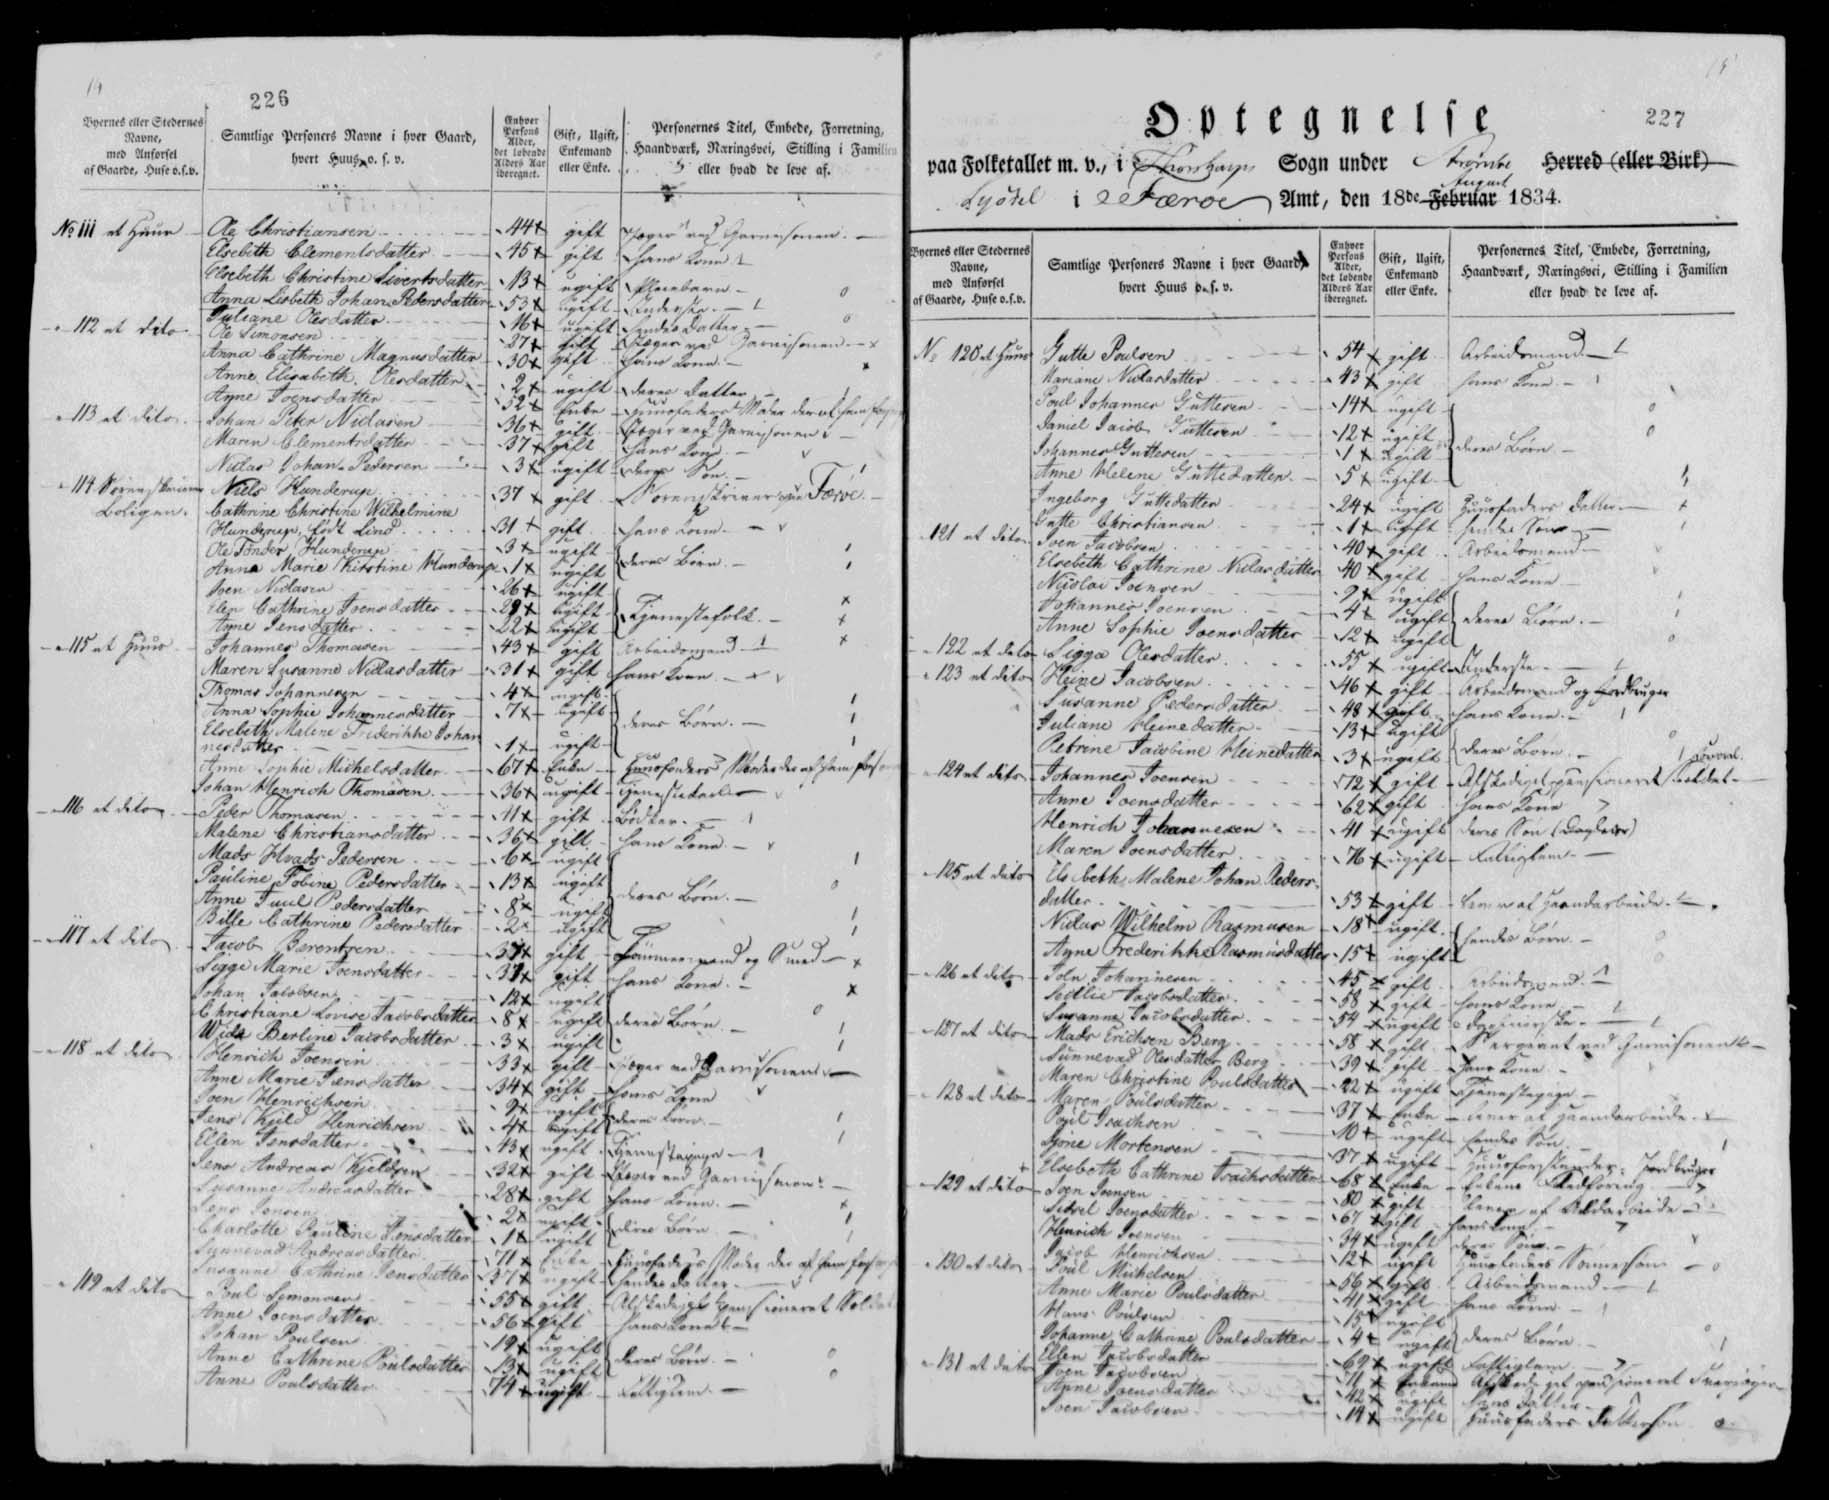 226
Byernes eller Stedernes Navne, med Anførsel af Gaarde, Huse o.s.v.
Samtlige Personers Navne i hver Gaard, hvert Huus o. s. v.
Enhver Persons Alder, det løbende Alders Aar iberegnet.
Gift, Ugift, Enkemand eller Enke.
Personernes Titel, Embede, Forretning, Haandværk, Næringsvei, Stilling i Familien eller hvad de leve af.
No 111 et Huus Ole Christiansen 44 gift Jæger ved Garnisonen
Elsebeth Clementsdatter 45 gift hans Kone
Elsebeth Christine Sivertsdatter 13 ugift Pleiebarn
Anna Lisbeth Johan Pedersdatter 53 ugift Inderste
Juliane Olesdatter 16 ugift hendes Datter
112 et dito Ole Simonsen 27 gift Jæger ved Garnisonen
Anna Cathrine Magnusdatter 30 gift hans Kone
Anne Elisabeth Olesdatter 2 ugift deres Datter
Anne Joensdatter 52 Enke Huusfaders Moder der af ham
113 et dito Johan Peter Niclasen 36 gift Jæger ved Garnisonen
Maren Clementsdatter 37 gift hans Kone
Niclas Johan Pedersen 3 ugift deres Søn
114 Sorenskriver Boligen Niels Hunderup 37 gift Sorenskriver paa Færöe
Cathrine Christine Wilhelmine
Hunderup, født Lind 31 gift hans Kone
Ole Tønder Hunderup 3 ugift
Anna Marie Kirstine Hunderup 1 ugift deres Börn
Joen Niclasen 26 ugift
Elen Cathrine Joensdatter 29 ugift Tjenestefolk
Anne Jensdatter 22 ugift
115 et Huus Johannes Thomasen 43 gift Arbeidsmand
Maren Susanne Niclasdatter 31 gift hans Kone
Thomas Johannesen 4 ugift
Anna Sophie Johannesdatter 7 ugift deres Børn
Elsebeth Malene Friderikke Johan
nesdatter 1 ugift
Anne Sophie Michelsdatter 67 Enke Huusfaders Moder der af ham
Johan Henrich Thomasen 36 ugift Tjenestekarl
116 et dito Peder Thomasen 41 gift Bødker
Malene Christiansdatter 36 gift hans Kone
Mads Hvads Pedersen 6 ugift
Pauline Tobine Pedersdatter 13 ugift
Anne Juul Pedersdatter 8 ugift deres Børn
Bille Cathrine Pedersdatter 2 ugift
117 et dito Jacob Berentzen 37 gift Tømmermand og Smed
Sigge Marie Joensdatter 37 gift hans Kone
Johan Jacobsen 12 ugift
Christiane Lovise Jacobsdatter 8 ugift deres Børn
Berline Jacobsdatter 3 ugift
118 et dito Henrich Joensen 33 gift Jæger ved Garnisonen
Anne Marie Jensdatter 34 gift hans Kone
Joen Henrichsen 9 ugift
Jens Kjeld Henrichsen 4 ugift deres Børn
Ellen Jensdatter 43 ugift Tjenestepige
Jens Andreas Kjeldsen 32 gift Jæger ved Garnisonen
Susanne Andreasdatter 28 gift hans Kone
Jens Jensen 2 ugift
Charlotte Pauline Jensdatter 1 ugift deres Børn
Sunnevad Andreasdatter 71 Enke Huusfaders Moder der af ham
Susanne Cathrine Jensdatter 37 ugift hendes Datter
119 et dito Poul Simonsen 55 gift Afskediget pensioneret Soldat
Anne Joensdatter 56 gift hans Kone
Johan Poulsen 19 ugift
Anne Cathrine Poulsdatter 13 ugift deres Børn
Anne Poulsdatter 74 ugift Fattiglem
227
Optegnelse
paa Folketallet m. v., i Thorshavns Sogn under Strømøe Herred (eller Birk)
Syssel i Færøe Amt, den 18de Februar August 1834.
Byernes eller Stedernes Navne, med Anførsel af Gaarde, Huse o.s.v.
Samtlige Personers Navne i hver Gaard, hvert Huus o. s. v.
Enhver Persons Alder, det løbende Alders Aar iberegnet.
Gift, Ugift, Enkemand eller Enke.
Personernes Titel, Embede, Forretning, Haandværk, Næringsvei, Stilling i Familien eller hvad de leve af.
No 120 et Huus Gutte Poulsen 54 gift Arbeidsmand
Mariane Niclasdatter 43 gift hans Kone
Poul Johannes Guttesen 14 ugift
Daniel Jacob Guttesen 12 ugift
Johannes Guttesen 1 ugift deres Børn
Anne Helene Guttesdatter 5 ugift
Ingeborg Guttesdatter 24 ugift Huusfaders Datter
Gutte Christiansen 1 ugift hendes Søn
121 et dito Joen Jacobsen 40 gift Arbeidsmand
Elsebeth Cathrine Niclasdatter 40 gift hans Kone
Nicolai Joensen 9 ugift
Johannes Joensen 4 ugift deres Børn
Anne Sophie Joensdatter 12 ugift
122 et dito Sigga Olesdatter 55 ugift Inderste
123 et dito Heine Jacobsen 46 gift Arbeidsmand og Jordbruger
Susanne Pedersdatter 48 gift hans Kone
Juliane Heinesdatter 13 ugift
Petrine Jacobine Heinesdatter 3 ugift deres Børn
124 et dito Johannes Joensen 72 gift Afskediget pensioneret Soldat
Anne Joensdatter 62 gift hans Kone
Henrich Johannesen 41 ugift deres Søn (Daglejer)
Maren Joensdatter 76 ugift Fattiglem
125 et dito Elsebeth Malene Johan Peders-
datter 53 gift lever af Haandarbeide
Niclas Wilhelm Rasmusen 18 ugift hendes Børn
Anne Frederikke Rasmusdatter 15 ugift
126 et dito Joen Johannesen 45 gift Arbeidsmand
Jacobsdatter 58 gift hans Kone
Susanne Jacobsdatter 54 ugift
127 et dito Mads Erichsen Berg 58 gift Sergeant ved Garnisonen
Sunnevad Olesdatter Berg 39 gift hans Kone
Maren Christine Poulsdatter 22 ugift Tjenestepige
128 et dito Maren Poulsdatter 37 Enke lever af Haandarbeide
Poul Isachsen 10 ugift hendes Søn
Mortensen 37 ugift Huusforstander, Jordbruger
Elsebeth Cathrine Isachsdatter 68 Enke
129 et dito Joen Joensen 80 gift lever af Arbeide
Sidsel Joensdatter 67 gift hans Kone
Henrich Joensen 34 ugift deres Søn
Jacob Henrichsen 12 ugift Huusfaders Sønnesøn
130 et dito Poul Michelsen 56 gift Arbeidsmand
Anne Marie Poulsdatter 41 gift hans Kone
Hans Poulsen 15 ugift
Johanne Cathrine Poulsdatter 4 ugift deres Børn
Ellen Jacobsdatter 69 ugift Fattiglem
131 et dito Joen Jacobsen 71 Enkemand Afskediget pensioneret
Anne Joensdatter 42 ugift hans Datter
Joen Jacobsen 14 ugift Huusfaders Dattersøn